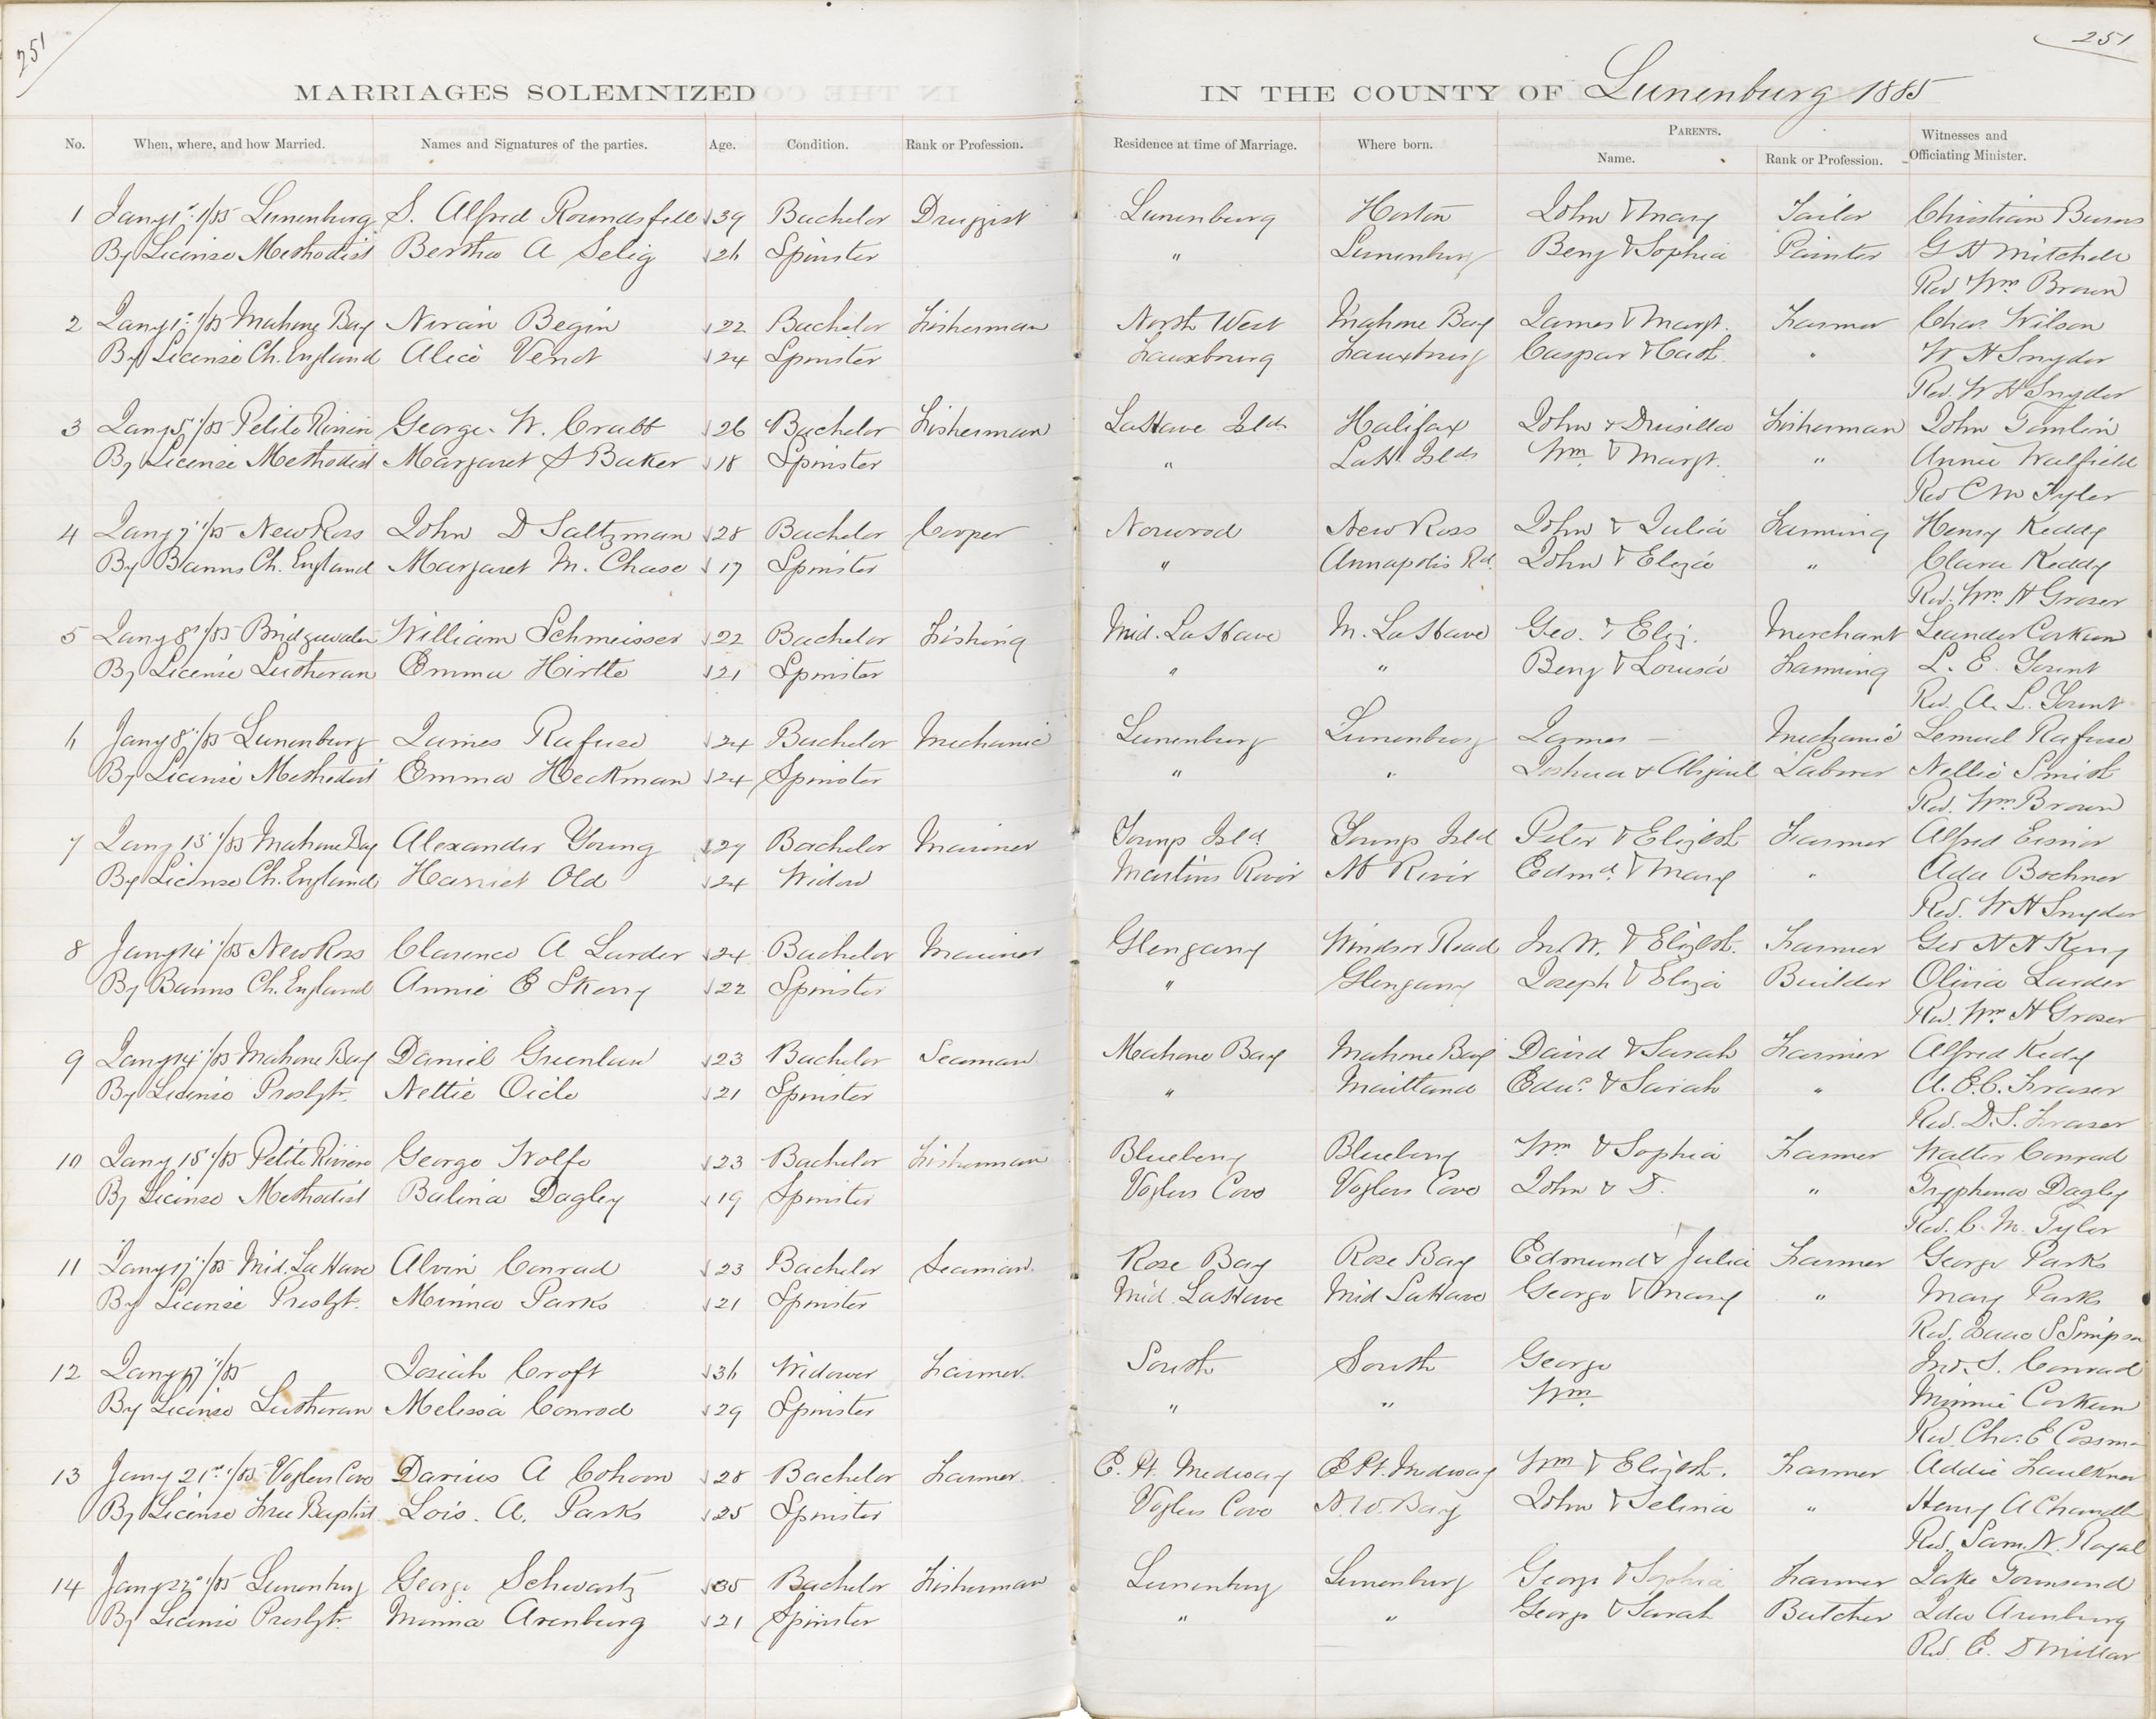 251
251
MARRIAGES SOLEMNIZED IN THE COUNTY OF Lunenburg 1885
No. When, where, and how Married. Names and Signatures of the parties. Age. Condition. Rank or Profession. Residence at time of Marriage. Where born. PARENTS. Name. Rank or Profession. Witnesses and Officiating Minister.
1 Jany 1st 1/85 Lunenburg S. Alfred Roundsfell 39 Bachelor Druggist Lunenburg Horton John & Mary Tailor Christian Burns
By License Methodist Bertha A Selig 26 Spinster " Lunenburg Benj & Sophia Painter G H Mitchell
Rev Wm Brown
2 Jany 1st 1/85 Mahone Bay Begin 22 Bachelor Fisherman North West Mahone Bay James & Margt. Farmer Chas. Wilson
By License Ch. England Alice Venot 24 Spinster Fauxburg Fauxburg Caspar & Cath. " W H Snyder
Rev. W H Snyder
3 Jany 5 1/85 Petite Riviere George W. Crabb 26 Bachelor Fisherman LaHave Islds Halifax John & Drusilla Fisherman John Tomlin
By License Methodist Margaret S Baker 18 Spinster " LaH. Islds Wm & Margt. " Annie Walfield
Rev C M Tyler
4 Jany 7 1/85 New Ross John D Saltzman 28 Bachelor Cooper Norwood New Ross John & Julia Farming Henry Keddy
By Banns Ch. England Margaret M. Chase 17 Spinster " Annapolis Rd. John & Eliza " Clara Keddy
Rev. Wm H Groser
5 Jany 8 1/85 Bridgewater William Schmeisser 22 Bachelor Fishing Mid. LaHave M. LaHave Geo. & Eliz. Merchant Leander Corkum
By License Lutheran Emma Hirtle 21 Spinster " " Benj & Louisa Farming L. E. Yount
Rev. A. L. Yount
6 Jany 8 1/85 Lunenburg James Rafuse 24 Bachelor Mechanic Lunenburg Lunenburg James — Mechanic Lemuel Rafuse
By License Methodist Emma Heckman 24 Spinster " " Joshua & Abigail Laborer Nellie Smith
Rev. Wm Brown
7 Jany 13 1/85 Mahone Bay Alexander Young 27 Bachelor Mariner Youngs Isld Youngs Isld Peter & Elizbth Farmer Alfred Eisnor
By License Ch. England Harriet Old 24 Widow Martins River M River Edmd. & Mary " Ada Bochner
Rev. W H Snyder
8 Jany 14 1/85 New Ross Clarence A Larder 24 Bachelor Mariner Glengarry Windsor Road Jn. W. & Elizbth. Farmer Geo N H Kerry
By Banns Ch. England Annie E Skerry 22 Spinster " Glengarry Joseph & Eliza Builder Olivia Larder
Rev. Wm H Groser
9 Jany 14 1/85 Mahone Bay Daniel Greenlaw 23 Bachelor Seaman Mahone Bay Mahone Bay David & Sarah Farmer Alfred Kedy
By License Presbytr. Nettie Oicle 21 Spinster " Maitland Edwd. & Sarah " A. E. C. Fraser
Rev. D. S. Fraser
10 Jany 15 1/85 Petite Riviere George Wolfe 23 Bachelor Fisherman Blueberry Blueberry Wm & Sophia Farmer Walter Conrad
By License Methodist Balina Dagley 19 Spinster Voglers Cove Voglers Cove John & S. " Tryphena Dagley
Rev. C. M. Tyler
11 Jany 17 1/85 Mid. LaHave Alvin Conrad 23 Bachelor Seaman. Rose Bay Rose Bay Edmund & Julia Farmer George Parks
By License Presbyt. Minna Parks 21 Spinster Mid. LaHave Mid LaHave George & Mary " Mary Parks
Rev. Isaac S Simpson
12 Jany 17 1/85 Josiah Croft 36 Widower Farmer. South South George Jno. S. Conrad
By License Lutheran Melissa Conrod 29 Spinster " " Wm. Minnie Corkum
Rev. Chas. E Cossman
13 Jany 21st 1/85 Voglers Cove Darius A Cohoon 28 Bachelor Farmer. E. Pt. Medway E Pt. Medway Wm & Elizbth. Farmer Addie Faulkner
By License Free Baptist Lois. A. Parks 25 Spinster Voglers Cove N. W. Bay John & Selina " Henry A Chandler
Rev. Sam. N. Royal
14 Jany 22d 1/85 Lunenburg George Schwartz 35 Bachelor Fisherman Lunenburg Lunenburg George & Sophia Farmer Jake Townsend
By License Presbytr. Minna Arenburg 21 Spinster " " George & Sarah Butcher Ida Arenburg
Rev. E. D Millar